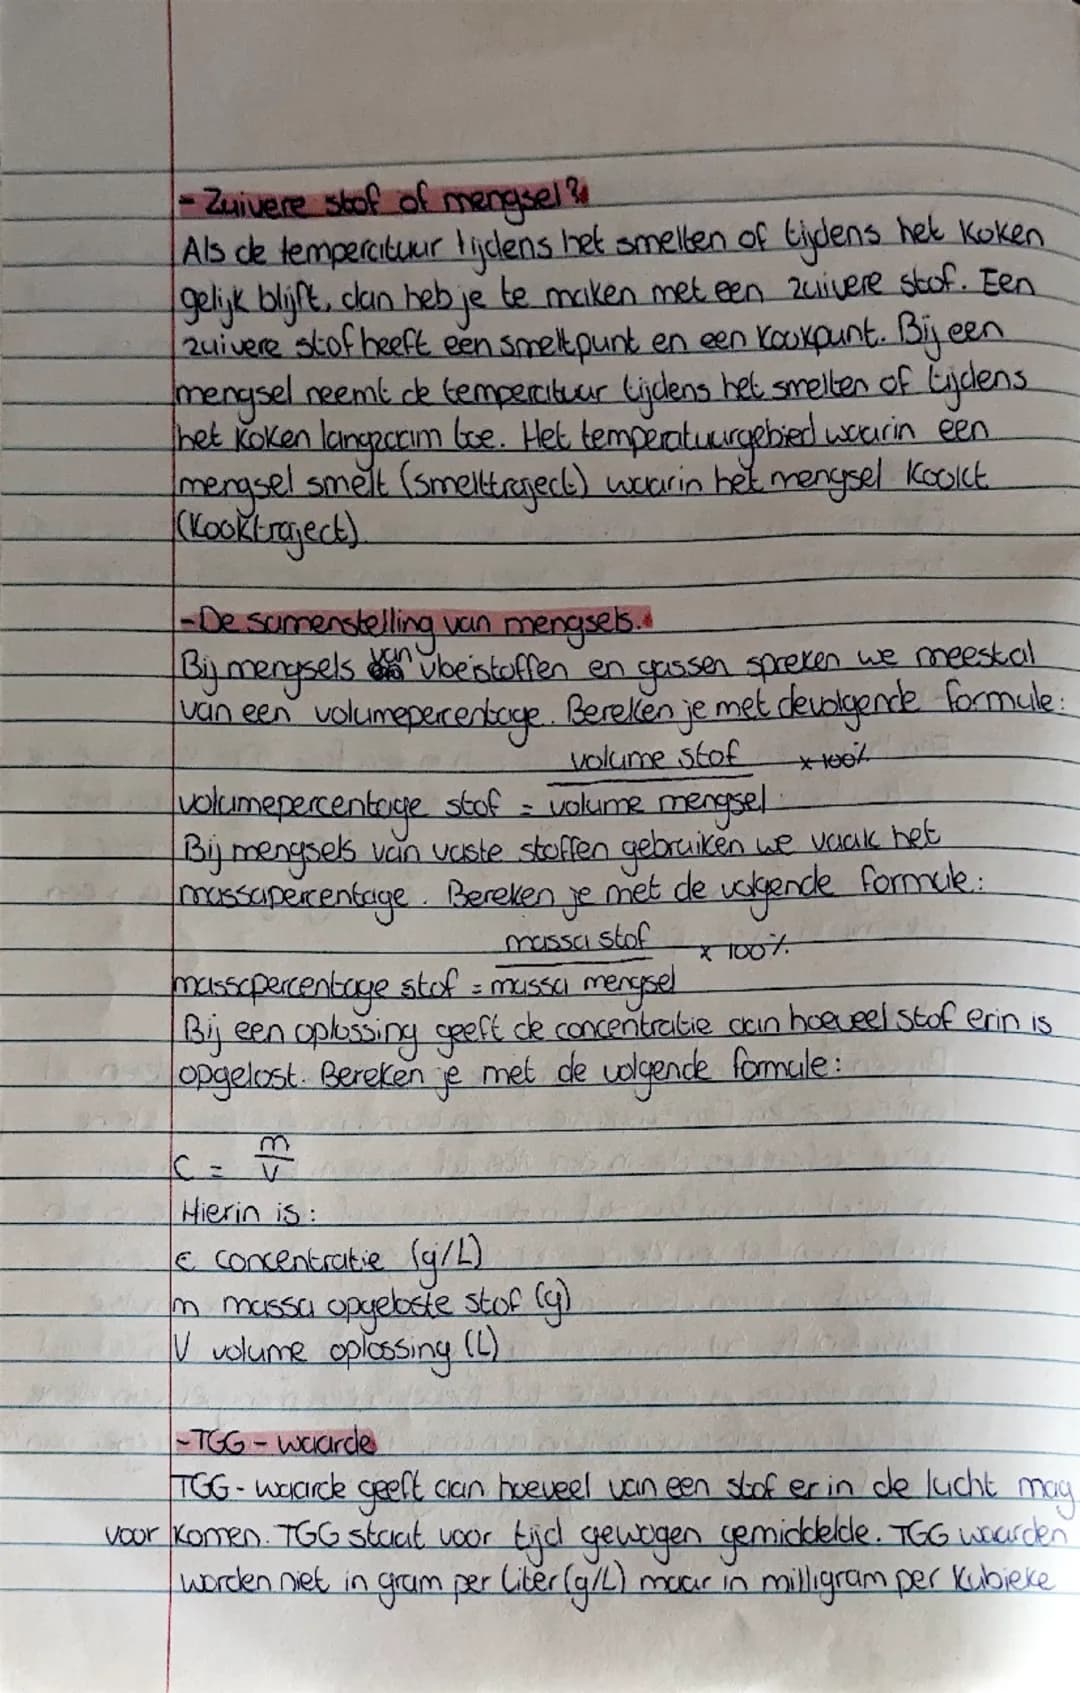 - Zuivere stof of mengsel?
Als de temperatuur tijdens het smelten of tijdens het koken
gelijk blijft, dan heb je te maken met een zuivere stof. Een
zuivere stof heeft een smeltpunt en een kookpunt. Bij een
mengsel neemt de temperatuur tijdens het smelten of tijdens
het koken langzaam toe. Het temperatuurgebied waarin een
mengsel smelt (smelttraject) waarin het mengsel kookt
(Kooktraject).
- De samenstelling van mengsels.
Bij mengsels van vloeistoffen en gassen spreken we meestal
van een volumepercentage. Bereken je met de volgende formule:
volume stof x 100%
volumepercentage stof = volume mengsel
Bij mengsels van vaste stoffen gebruiken we vaak het
massapercentage. Bereken je met de volgende formule:
massa stof x 100%
massapercentage stof = massa mengsel
Bij een oplossing geeft de concentratie aan hoeveel stof erin is
opgelost. Bereken je met de volgende formule:
C = m/V
Hierin is:
c concentratie (g/L)
m massa opgeloste stof (g)
V volume oplossing (L)
- TGG - waarde
TGG - waarde geeft aan hoeveel van een stof er in de lucht mag
voor komen. TGG staat voor tijd gewogen gemiddelde. TGG waarden
worden niet in gram per liter (g/L) maar in milligram per kubieke